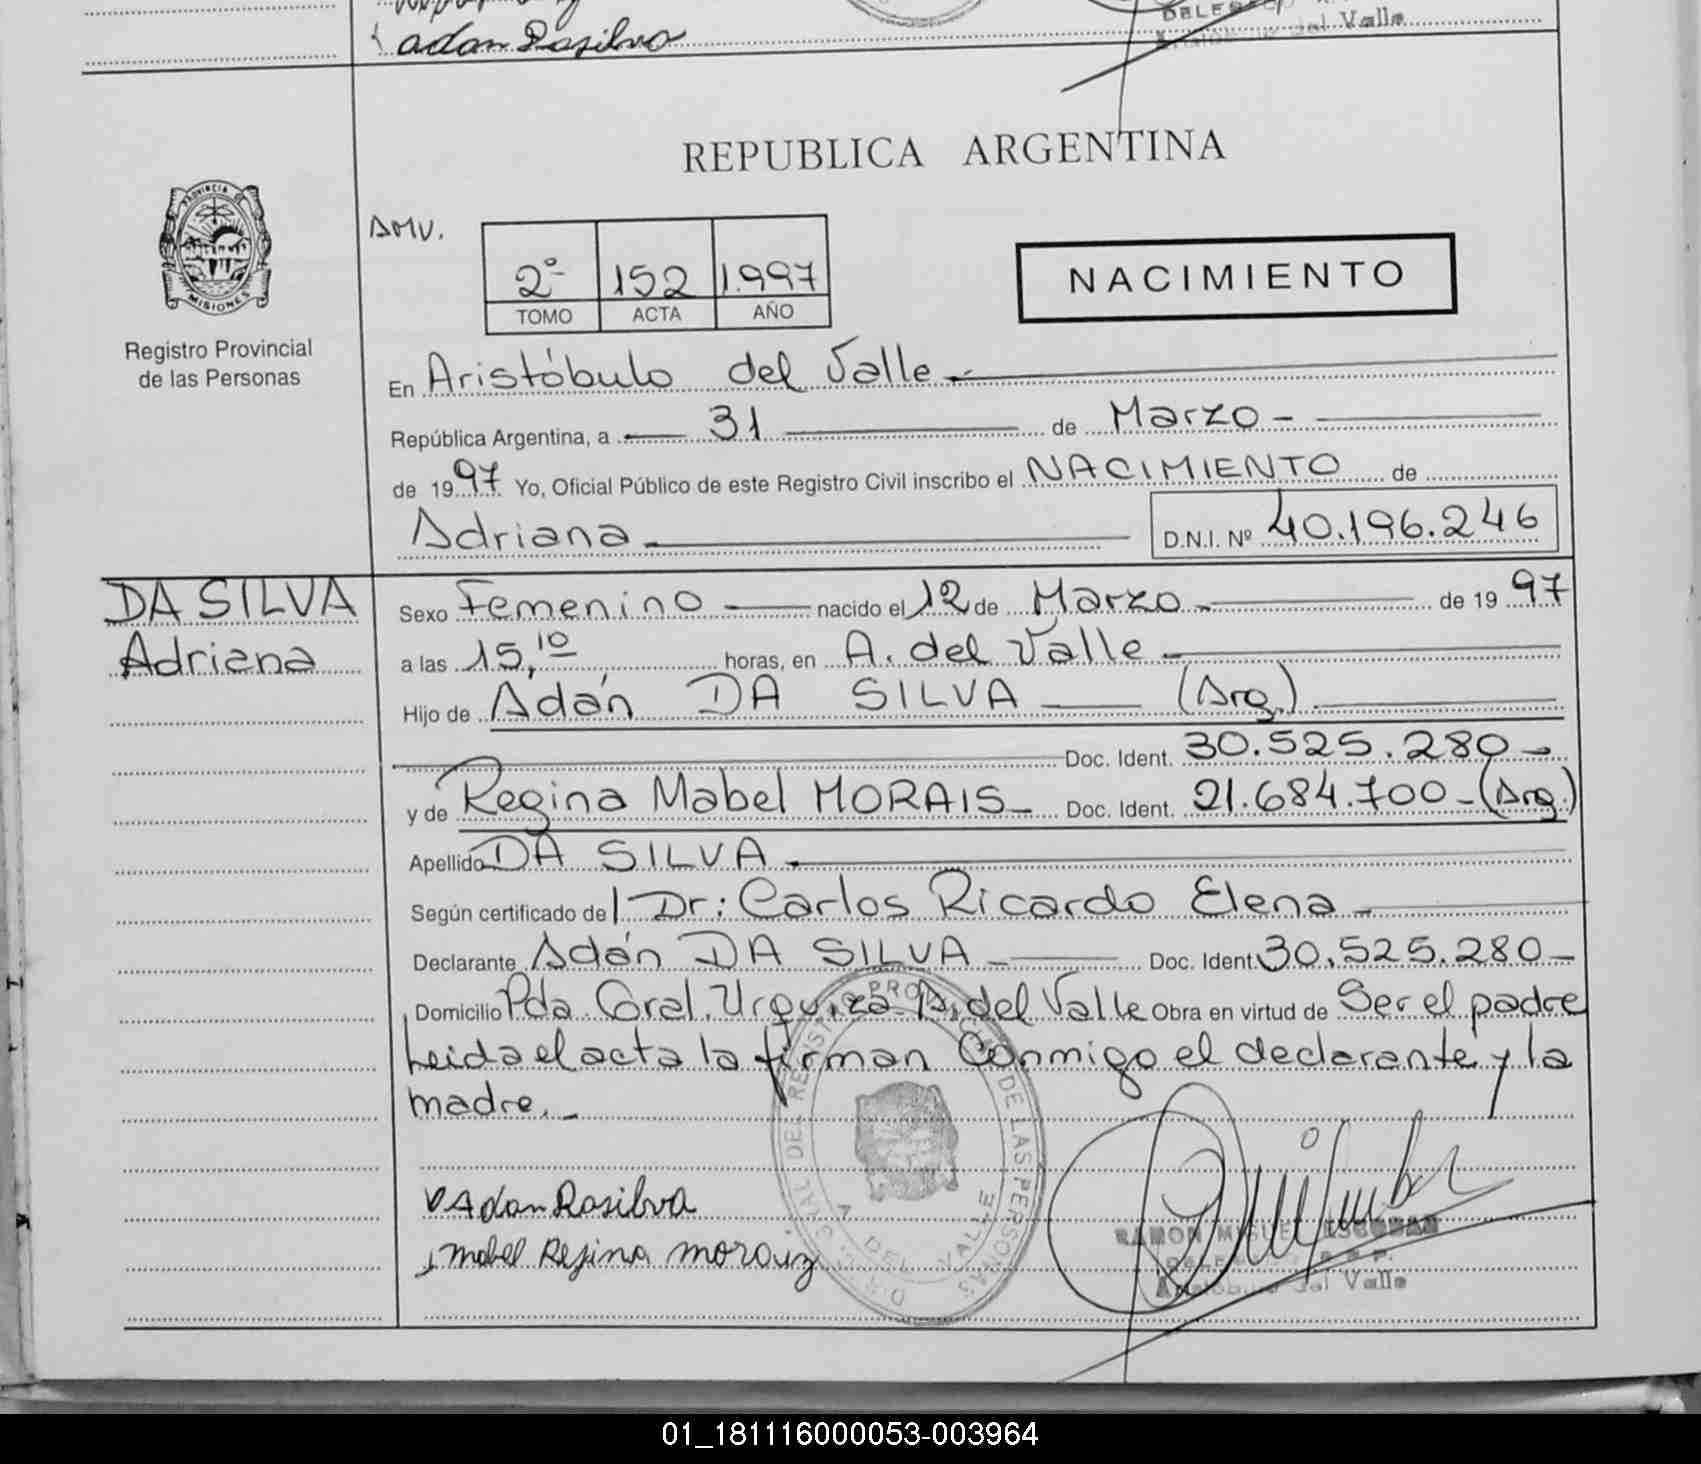 adan Dasilva
DELEG
del Valle
REPUBLICA ARGENTINA
PROVINCIA DE
MISIONES
AMV.
2º 152 1.997
TOMO ACTA AÑO
NACIMIENTO
Registro Provincial
de las Personas
En Aristóbulo del Valle
República Argentina, a 31 de Marzo
de 1997 Yo, Oficial Público de este Registro Civil inscribo el NACIMIENTO de
Adriana D.N.I. Nº 40.196.246
DA SILVA
Adriana
Sexo Femenino nacido el 12 de Marzo de 1997
a las 15,10 horas, en A. del Valle
Hijo de Adán DA SILVA (Arg.)
Doc. Ident. 30.525.280
y de Regina Mabel MORAIS Doc. Ident. 21.684.700 (Arg.)
Apellido DA SILVA
Según certificado del Dr: Carlos Ricardo Elena
Declarante Adán DA SILVA Doc. Ident. 30.525.280
Domicilio Pda. Gral. Urquiza A. del Valle Obra en virtud de Ser el padre
Leida el acta la firman Conmigo el declarante y la
madre.
Adan Dasilva
mabel Rejina
RAMON MIGUEL ESCOBAR
del Valle
01_181116000053-003964